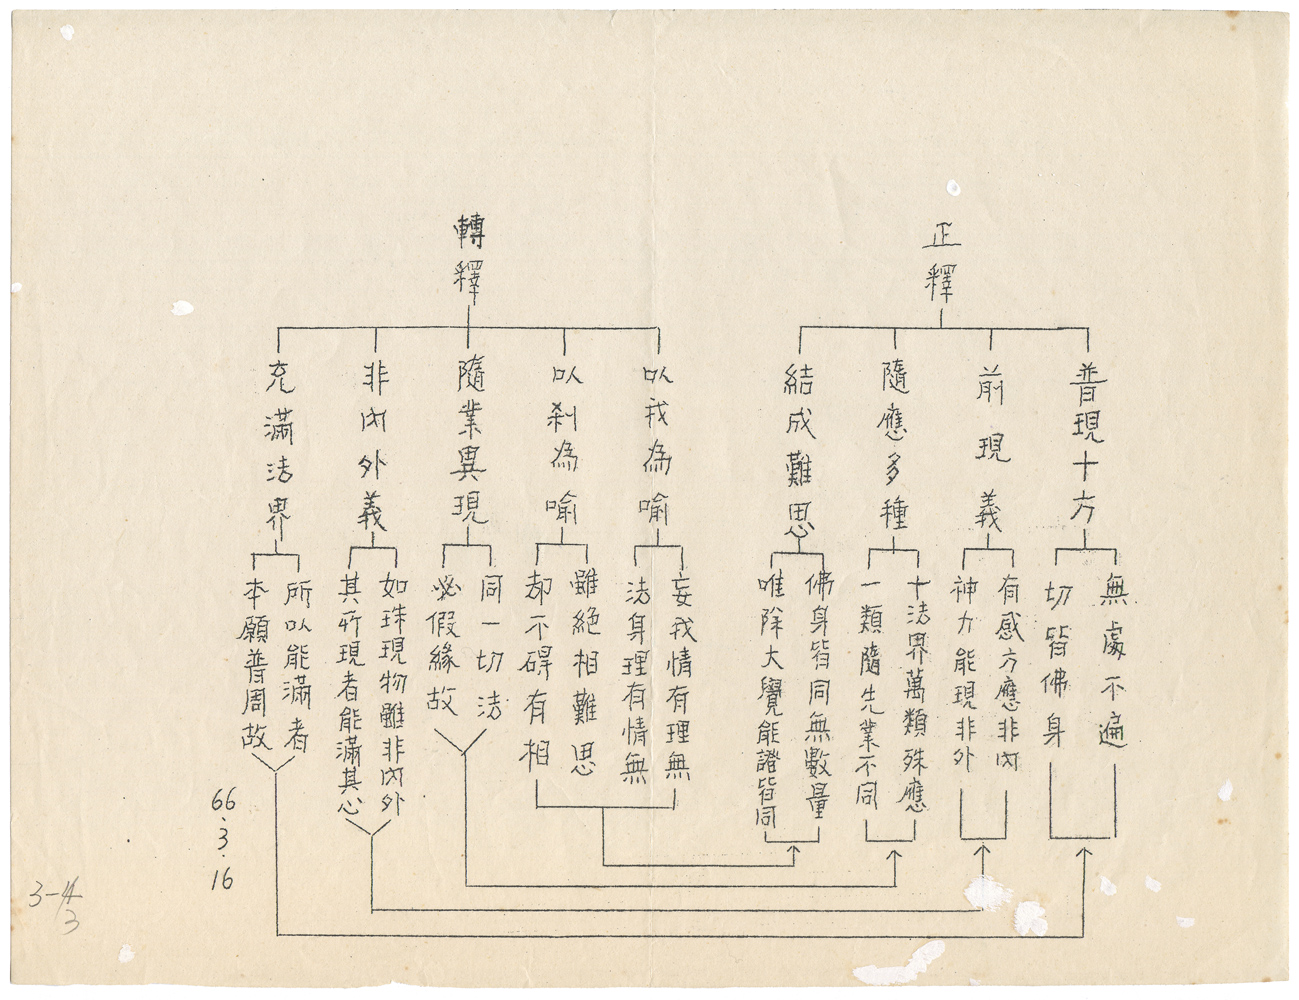 正釋
普現十方
無處不遍
切皆佛身
前現義
有感方應非內
神力能現非外
隨應多種
十法界萬類殊應
一類隨先業不同
結成難思
佛身皆同無數量
唯除大覺能證皆同
轉釋
以我為喻
妄我情有理無
法身理有情無
以刹為喻
雖絕相難思
却不碍有相
隨業異現
同一切法
必假緣故
非內外義
如珠現物雖非內外
其所現者能滿其心
充滿法界
所以能滿者
本願普周故
66.3.16
3-4
3